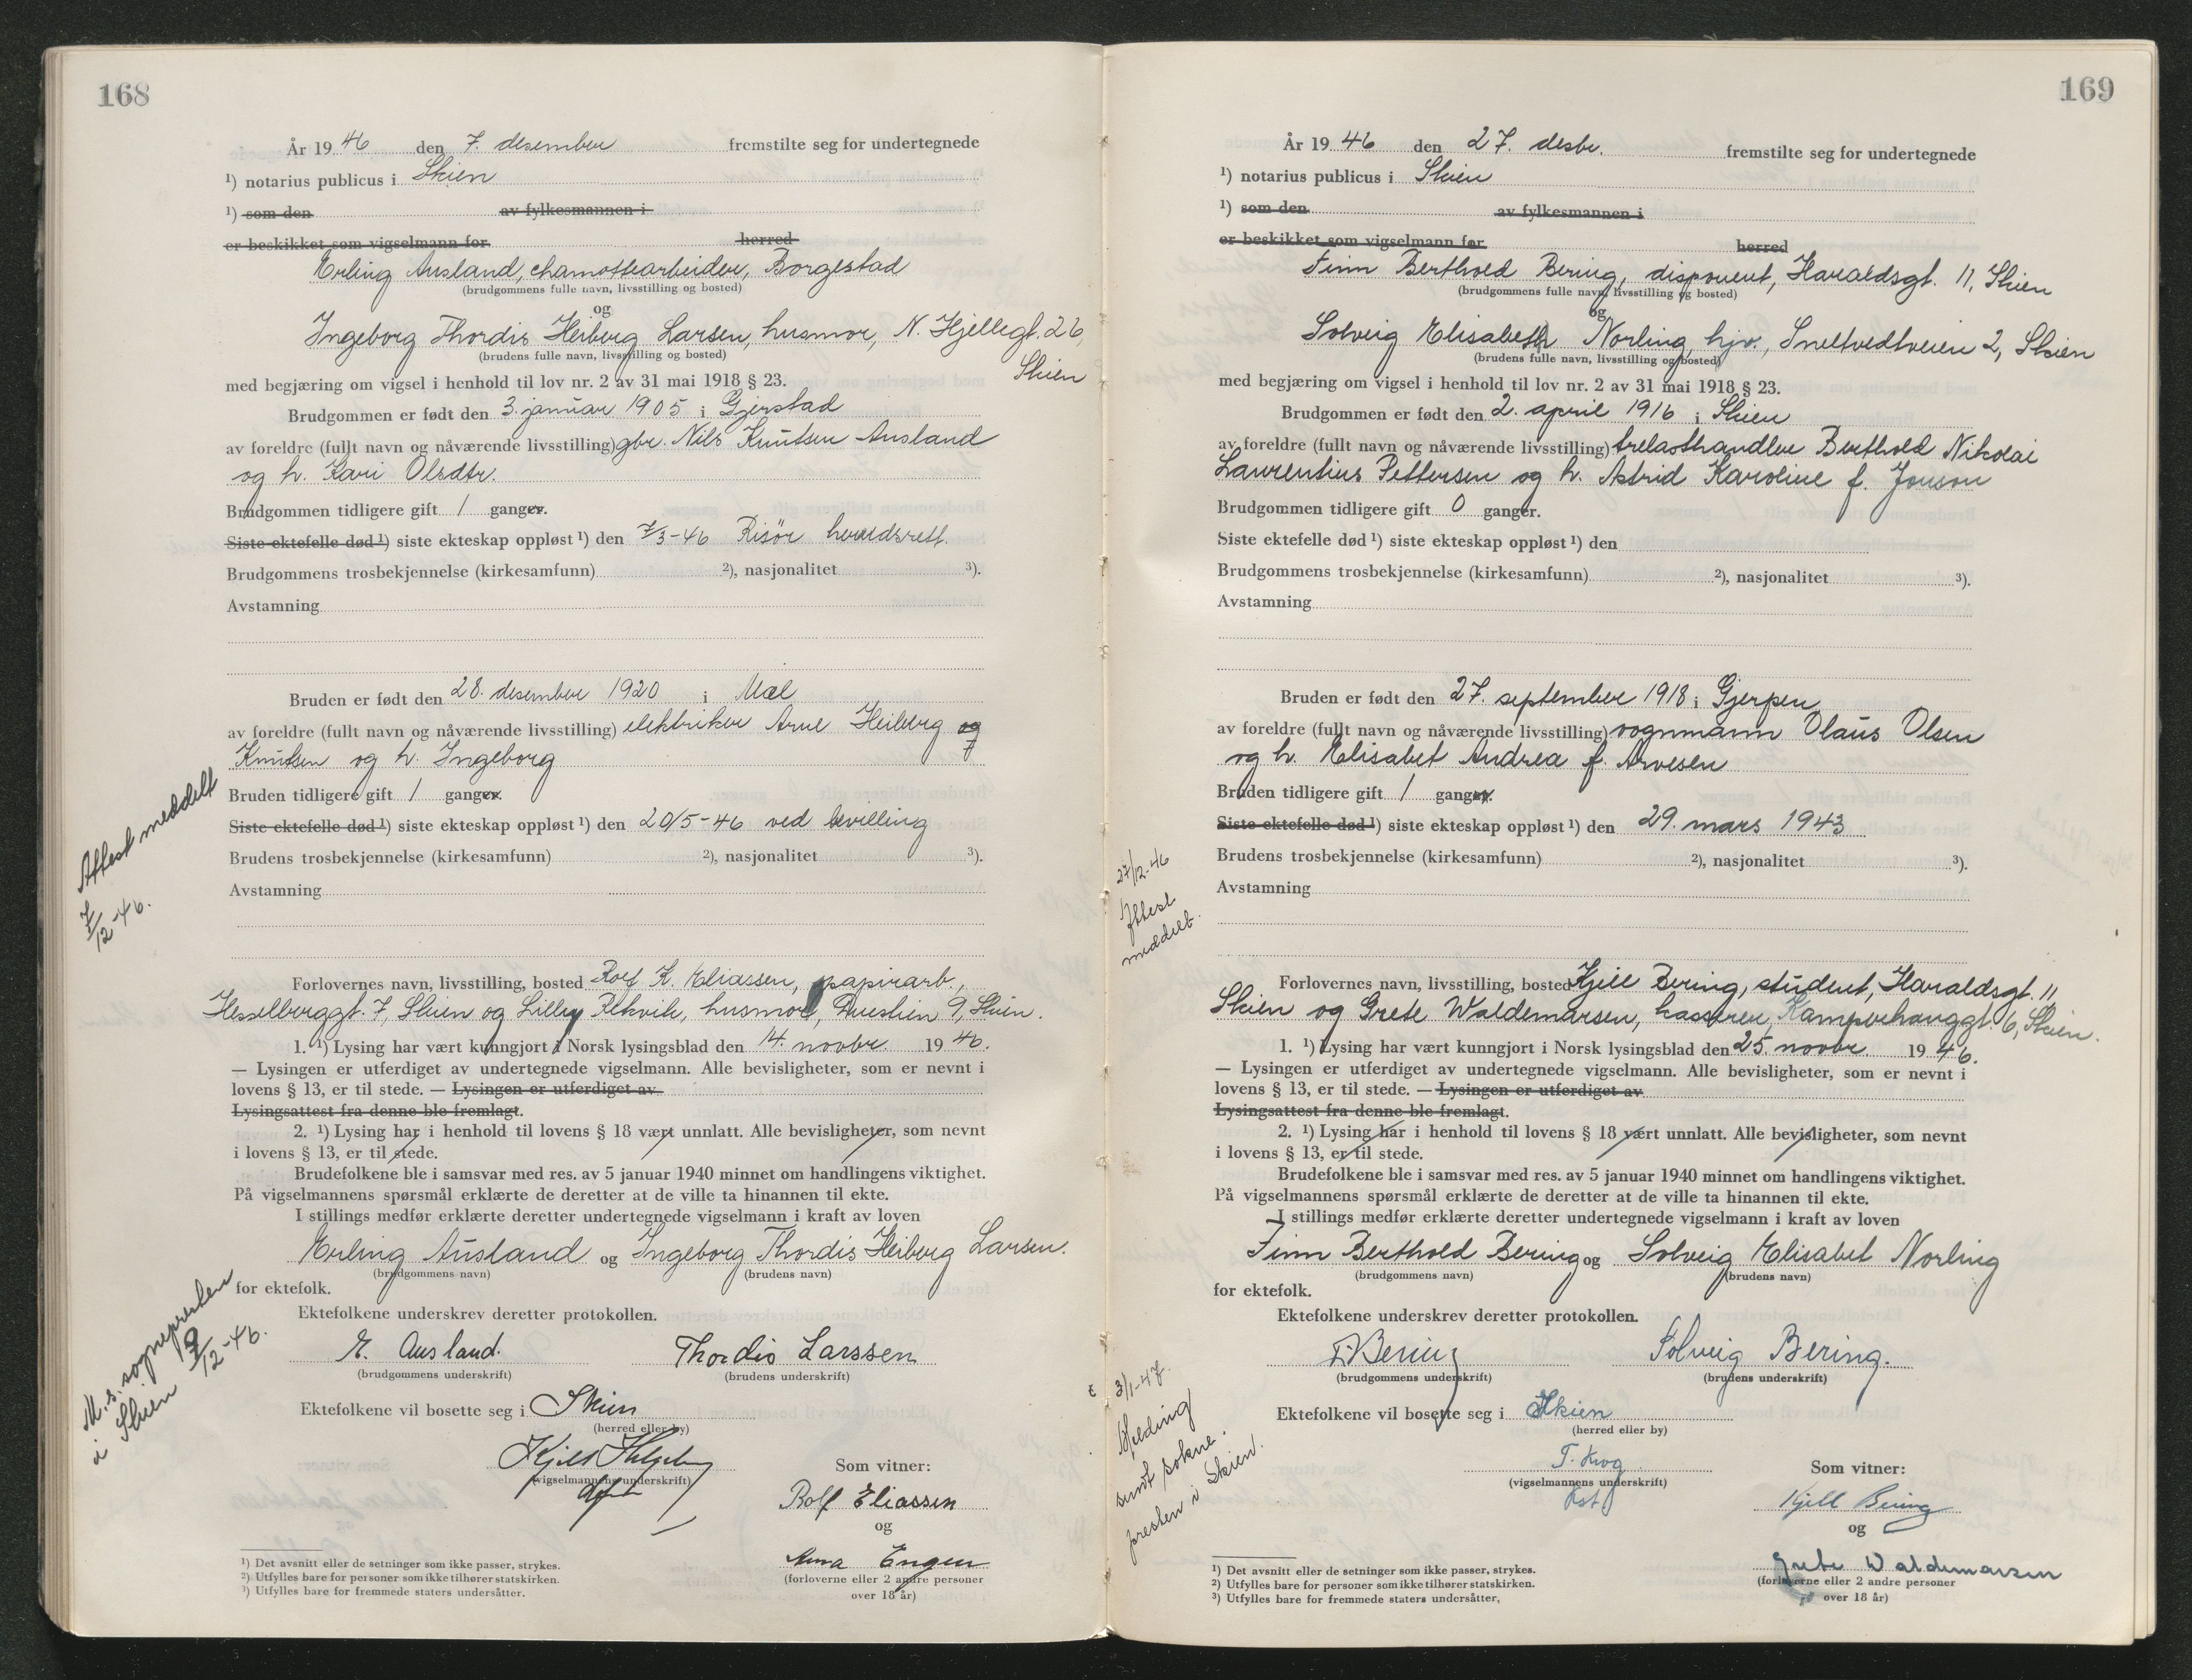 168
År 1946 den 7. desember fremstilte seg for undertegnede
¹) notarius publicus i Skien
¹) som den av fylkesmannen i
er beskikket som vigselmann for herred
Erling Ausland, chamottearbeider, Borgestad
(brudgommens fulle navn, livsstilling og bosted)
og
Ingeborg Thordis Heiberg Larsen, husmor, N. Hjellegt. 26,
(brudens fulle navn, livsstilling og bosted)
Skien
med begjæring om vigsel i henhold til lov nr. 2 av 31 mai 1918 § 23.
Brudgommen er født den 3. januar 1905 i Gjerstad
av foreldre (fullt navn og nåværende livsstilling) gbr. Nils Knutsen Ausland
og h. Kari Olsdtr.
Brudgommen tidligere gift 1 ganger.
Siste ektefelle død ¹) siste ekteskap oppløst ¹) den 7/3-46 Risör herredsrett.
Brudgommens trosbekjennelse (kirkesamfunn) ²), nasjonalitet ³).
Avstamning
Bruden er født den 28. desember 1920 i Mæl
av foreldre (fullt navn og nåværende livsstilling) elektriker Arne Heiberg og
Knutsen og h. Ingeborg
Bruden tidligere gift 1 ganger.
Siste ektefelle død ¹) siste ekteskap oppløst ¹) den 20/5-46 ved bevilling
Brudens trosbekjennelse (kirkesamfunn) ²), nasjonalitet ³).
Avstamning
Attest meddelt
7/12-46.
Forlovernes navn, livsstilling, bosted Rolf K. Eliassen, papirarb.,
Hesselberggt. 7, Skien og Lilly Rekvik, husmor, 9, Skien.
1. ¹) Lysing har vært kunngjort i Norsk lysingsblad den 14. novbr. 1946.
— Lysingen er utferdiget av undertegnede vigselmann. Alle bevisligheter, som er nevnt i
lovens § 13, er til stede. — Lysingen er utferdiget av
Lysingsattest fra denne ble fremlagt.
2. ¹) Lysing har i henhold til lovens § 18 vært unnlatt. Alle bevisligheter, som nevnt
i lovens § 13, er til stede.
Brudefolkene ble i samsvar med res. av 5 januar 1940 minnet om handlingens viktighet.
På vigselmannens spørsmål erklærte de deretter at de ville ta hinannen til ekte.
I stillings medfør erklærte deretter undertegnede vigselmann i kraft av loven
Erling Ausland og Ingeborg Thordis Heiberg Larsen.
(brudgommens navn) (brudens navn)
for ektefolk.
Ektefolkene underskrev deretter protokollen.
E. Ausland. Thordis Larssen
(brudgommens underskrift) (brudens underskrift)
M. s. sognepresten
i Skien 9/12-46.
Ektefolkene vil bosette seg i Skien
(herred eller by)
(vigselmannens underskrift)
Som vitner:
Rolf Eliassen
og
Anna Engen
(forloverne eller 2 andre personer
over 18 år)
¹) Det avsnitt eller de setninger som ikke passer, strykes.
²) Utfylles bare for personer som ikke tilhører statskirken.
³) Utfylles bare for fremmede staters undersåtter.
169
År 1946 den 27. desbr. fremstilte seg for undertegnede
¹) notarius publicus i Skien
¹) som den av fylkesmannen i
er beskikket som vigselmann for herred
Finn Berthold Bering, disponent, Haraldsgt. 11, Skien
(brudgommens fulle navn, livsstilling og bosted)
og
Solveig Elisabeth Norling, hjv., Sneltvedtveien 2, Skien
(brudens fulle navn, livsstilling og bosted)
med begjæring om vigsel i henhold til lov nr. 2 av 31 mai 1918 § 23.
Brudgommen er født den 2. april 1916 i Skien
av foreldre (fullt navn og nåværende livsstilling) trelasthandler Berthold Nikolai
Laurentius Pettersen og h. Astrid Karoline f. Jonson
Brudgommen tidligere gift 0 ganger.
Siste ektefelle død ¹) siste ekteskap oppløst ¹) den
Brudgommens trosbekjennelse (kirkesamfunn) ²), nasjonalitet ³).
Avstamning
Bruden er født den 27. september 1918 i Gjerpen
av foreldre (fullt navn og nåværende livsstilling) vognmann Olaus Olsen
og h. Elisabet Andrea f. Arvesen
Bruden tidligere gift 1 ganger.
Siste ektefelle død ¹) siste ekteskap oppløst ¹) den 29. mars 1943
Brudens trosbekjennelse (kirkesamfunn) ²), nasjonalitet ³).
Avstamning
27/12-46
Attest
meddelt.
Forlovernes navn, livsstilling, bosted Kjell Bering, student, Haraldsgt. 11
Skien og Grete Waldemarsen, kasserer, Kamperhauggt. 6, Skien.
1. ¹) Lysing har vært kunngjort i Norsk lysingsblad den 25. novbr. 1946.
— Lysingen er utferdiget av undertegnede vigselmann. Alle bevisligheter, som er nevnt i
lovens § 13, er til stede. — Lysingen er utferdiget av
Lysingsattest fra denne ble fremlagt.
2. ¹) Lysing har i henhold til lovens § 18 vært unnlatt. Alle bevisligheter, som nevnt
i lovens § 13, er til stede.
Brudefolkene ble i samsvar med res. av 5 januar 1940 minnet om handlingens viktighet.
På vigselmannens spørsmål erklærte de deretter at de ville ta hinannen til ekte.
I stillings medfør erklærte deretter undertegnede vigselmann i kraft av loven
Finn Berthold Bering og Solveig Elisabet Norling
(brudgommens navn) (brudens navn)
for ektefolk.
Ektefolkene underskrev deretter protokollen.
F. Bering Solveig Bering.
(brudgommens underskrift) (brudens underskrift)
3/1-47.
Melding
sendt sokne-
presten i Skien.
Ektefolkene vil bosette seg i Skien
(herred eller by)
T. Krog
(vigselmannens underskrift)
Som vitner:
Kjell Bering
og
Grete Waldemarsen
(forloverne eller 2 andre personer
over 18 år)
¹) Det avsnitt eller de setninger som ikke passer, strykes.
²) Utfylles bare for personer som ikke tilhører statskirken.
³) Utfylles bare for fremmede staters undersåtter,